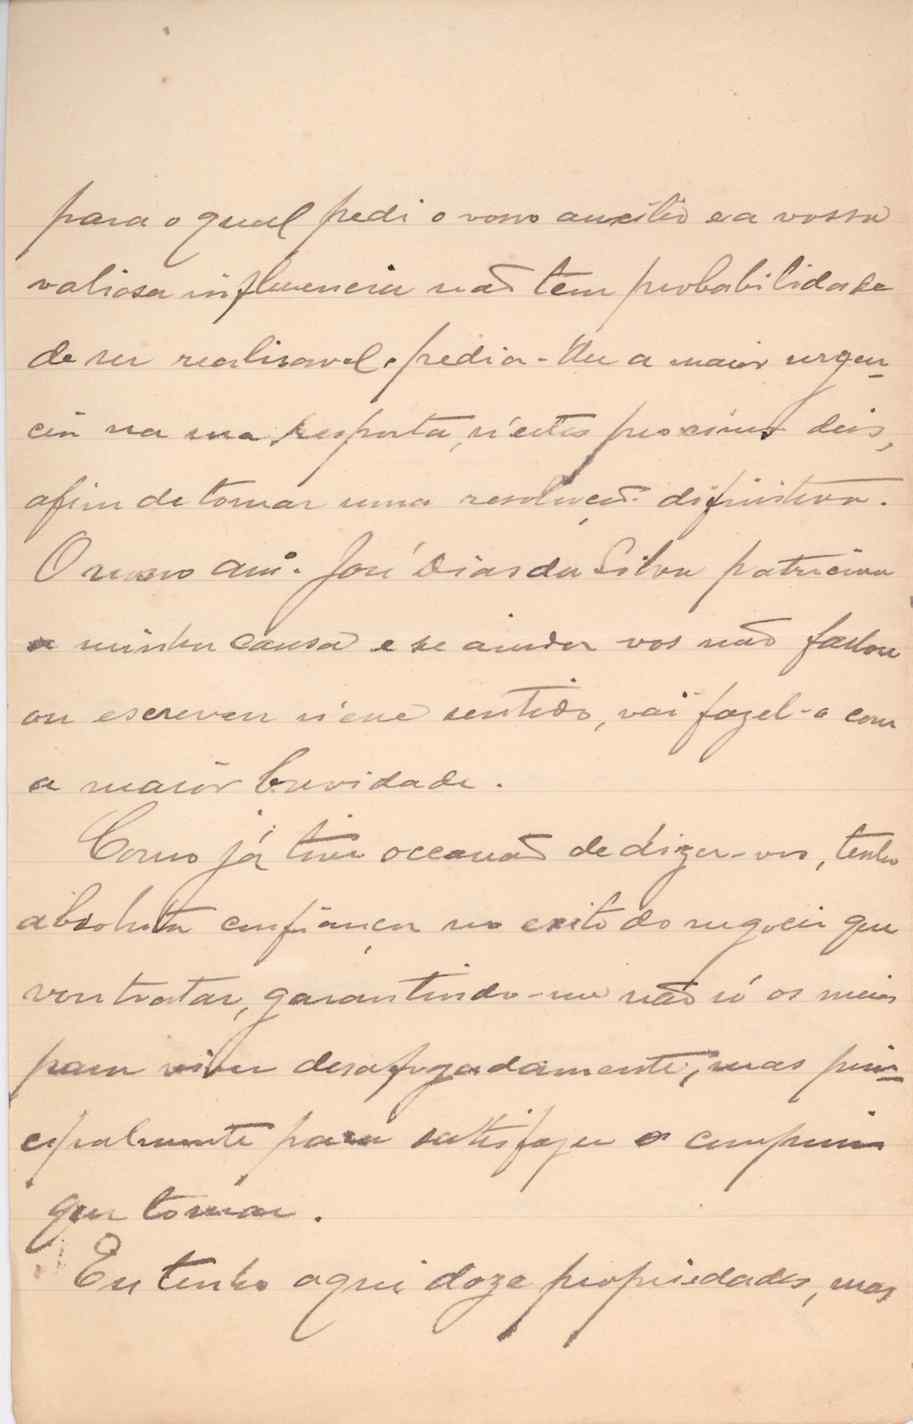 para o qual pedi o vosso auxilio e a vossa
valiosa influencia não tem probabilidade
de ser realisavel, pedia-lhe a maior urgen-
cia na sua resposta, n'estes proximos dias,
afim de tomar uma resolução difinitiva.
O nosso amº. José Dias da Silva patrocina
a minha causa e se ainda vos não fallou
ou escreveu n'esse sentido, vai fazel-o com
a maior brevidade.
Como já tive occasião de dizer-vos, tenho
absoluta confiança no exito do negocio que
vou tratar, garantindo-me não só os meios
para viver desafogadamente, mas prin-
cipalmente para sattisfazer o compromisso
que tomar.
Eu tenho aqui doze propriedades, mas